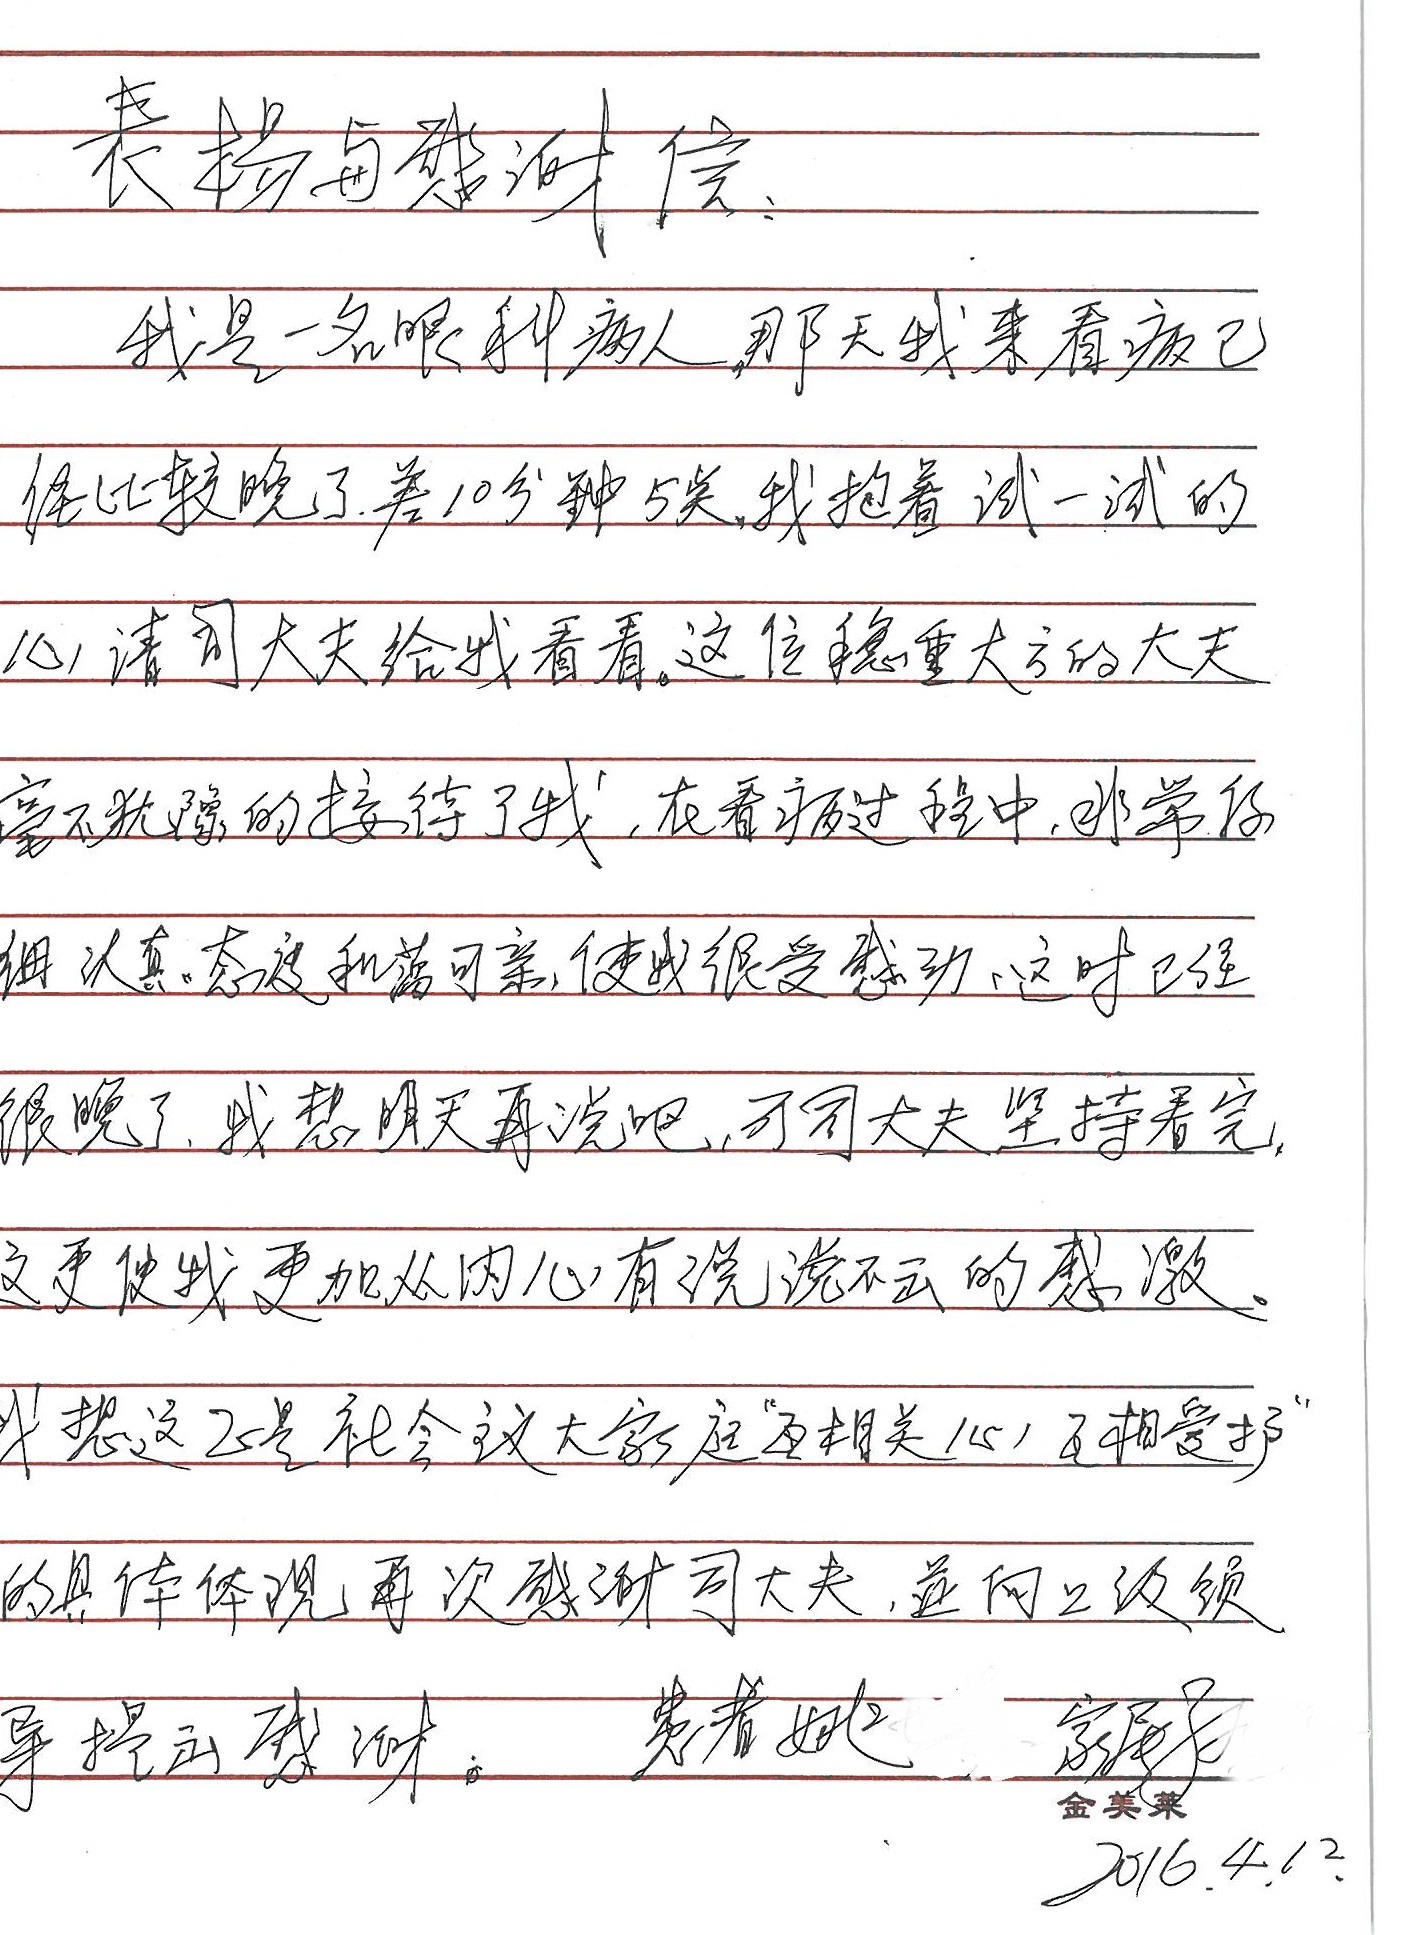 表揚与感谢信:
我是一名眼科病人,那天我来看病已
经比较晚了.差10分钟5点,我抱着试一试的
心请司大夫给我看看。这位稳重大方的大夫
毫不犹豫的接待了我,在看病过程中,非常仔
细认真。态度和蔼可亲,使我很受感动、这时已经
很晚了,我想明天再说吧,可司大夫坚持看完,
这更使我更加从内心有说说不出的感激。
我想这正是社会主义大家庭"互相关心互相爱护"
的具体体现,再次感谢司大夫,並向上级领
导提出感谢。 患者姚 家属
金美莱
2016.4.12.